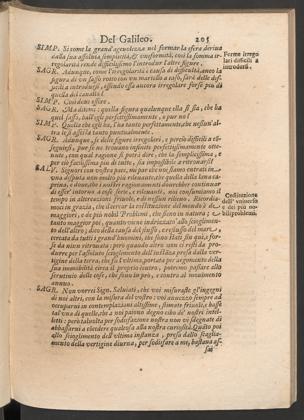 Del Galileo. 205
SIMP. Sì come la grand'agevolezza nel formar la sfera deriva
dalla sua assoluta semplicità, & uniformità, così la somma ir-
regolarità rende difficilissimo l'introdur l'altre figure.
Forme irrego
lari difficili a
introdursi.
SAGR. Adunque, come l'irregolarità è causa di difficultà, anco la
figura di un sasso rotto con un martello a caso, sarà delle dif-
ficili a introdursi, essendo essa ancora irregolare forse più di
quella del cavallo?
SIMP. Così deve essere.
SAGR. Ma ditemi: quella figura qualunque ella si sia, che ha
quel sasso, hall'egli perfettissimamente, o pur nò?
SIMP. Quella che egli ha, l'ha tanto perfettamente, che nessun'al
tra le si assesta tanto puntualmente.
SAGR. Adunque, se delle figure irregolari, e perciò difficili a con-
seguirsi, pur se ne trovano infinite perfettissimamente otte-
nute, con qual ragione si potrà dire, che la semplicissima, e
per ciò facilissima più di tutte, sia impossibile a ritrovarsi?
SALV. Signori con vostra pace, mi par che noi siamo entrati in
una disputa non molto più rilevante, che quella della lana ca-
prina, e dove, che i nostri ragionamenti dovrebber continuar
di esser' intorno a cose serie, e rilevanti, noi consumiamo il
tempo in altercazioni frivole, e di nessun rilievo. Ricordia-
moci in grazia, che il cercar la costituzione del mondo è de'
maggiori, e de più nobil Problemi, che sieno in natura; e
tanto maggior poi, quanto viene indrizzato allo scioglimento
dell'altro; dico della causa del flusso, e reflusso del mare,
Costituzione
dell' universo
è de i più no-
bili problemi.
cercata da tutti i grand'huomini, che sono stati sin quì, e for-
se da niun ritrovata: però quando altro non ci resti da pro-
durre per l'assoluto scioglimento dell'instanza presa dalla ver-
tigine della terra, che fu l'ultima portata per argomento della
sua immobilità circa il proprio centro, potremo passare allo
scrutinio delle cose, che sono in pro, e contro al movimento
annuo.
SAGR. Non vorrei Sign. Salviati, che voi misuraste gl'ingegni
di noi altri, con la misura del vostro: voi avvezzo sempre ad
occuparvi in contemplazioni altissime, stimate frivole, e basse
tal'una di quelle, che a noi paiono degno cibo de' nostri intel-
letti: però talvolta per sodisfazione nostra non vi sdegnate di
abbassarvi a concedere qualcosa alla nostra curiosità. Quanto poi
allo scioglimento dell'ultima instanza, presa dallo scaglia-
mento della vertigine diurna, per sodisfare a me, bastava as-
sai